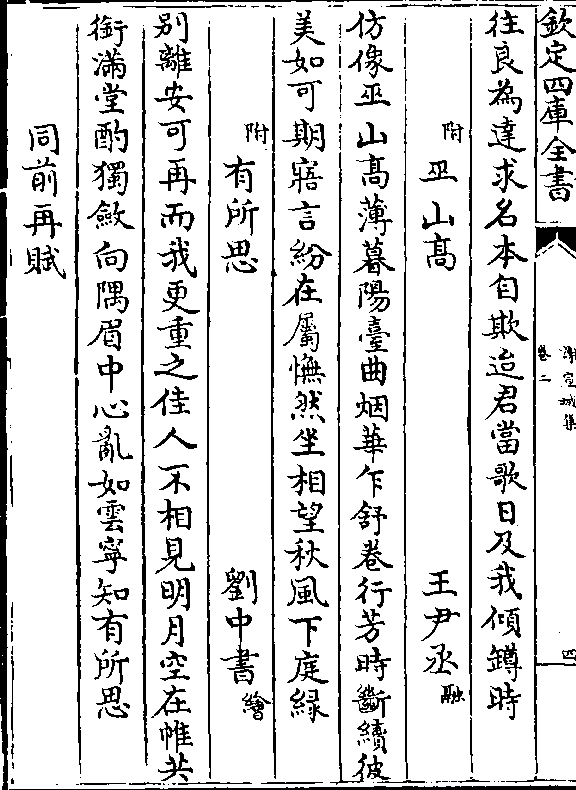 欽定四庫全書
謝宣城集
卷二
四
往良為達求名本自欺迨君當歌日及我傾鐏時
附 巫山髙 王尹丞融
仿像巫山髙薄暮陽臺曲烟華乍舒卷行芳時斷續彼
美如可期寤言紛在屬憮然坐相望秋風下庭緑
附 有所思 劉中書繪
别離安可再而我更重之佳人不相見明月空在帷共
銜滿堂酌獨斂向隅眉中心亂如雲寧知有所思
同前再賦